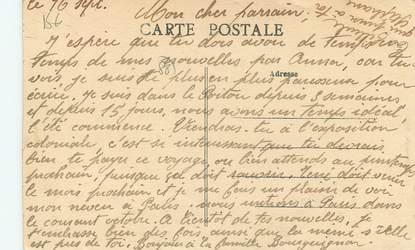 le 16 sept.
15f
Mon cher parrain,
CARTE POSTALE
J'espère que tu dois avoir de temps en
temps de mes nouvelles par Anna, car tu
vois je suis de plus en plus paresseuse pour
Adresse
écrire. Je suis dans le Poitou depuis 3 semaines
et depuis 15 jours, nous avons un temps idéal,
l'été commence. Viendras-tu à l'exposition
coloniale, c'est si intéressant que tu devrais
bien te payer ce voyage, ou bien attends au printemps
prochain, puisque Gel doit venir
le mois prochain et je me fais un plaisir de voir
mon neveu à Paris. Nous rentrons à Paris dans
le courant octobre. A bientôt de tes nouvelles, je
t'embrasse bien des fois ainsi que la mémé s'elle
est près de toi. Bonjour à la famille Bourguignon